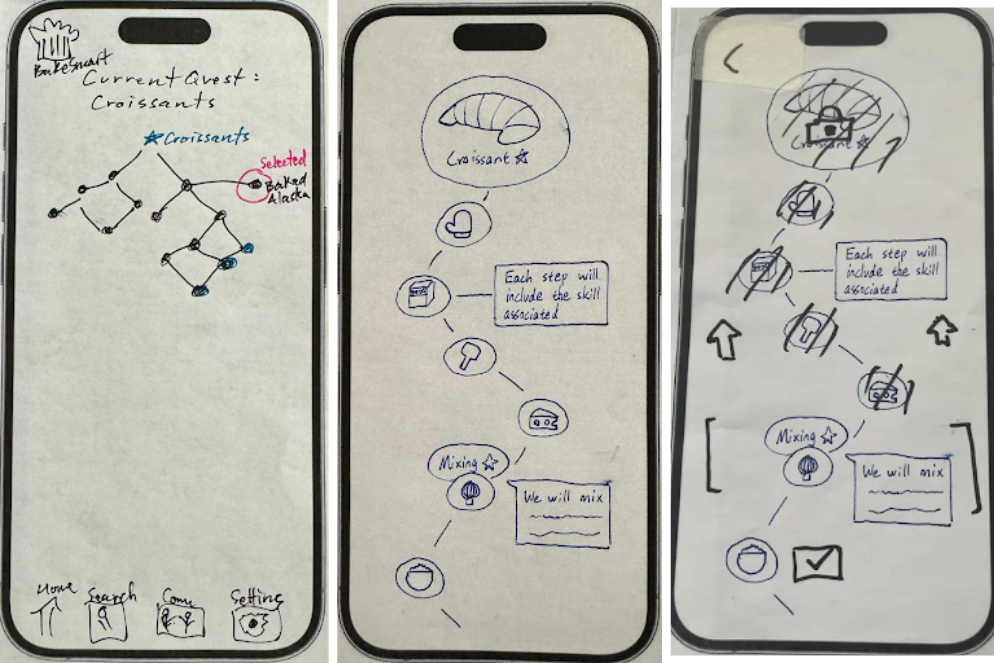 BakeSmart
Current Quest:
Croissants
Croissants
Selected
Baked
Alaska
Home
Search
Comm
Setting
Croissant
Each step will
include the skill
associated
Mixing
We will mix
Croissant
Each step will
include the skill
associated
Mixing
We will mix